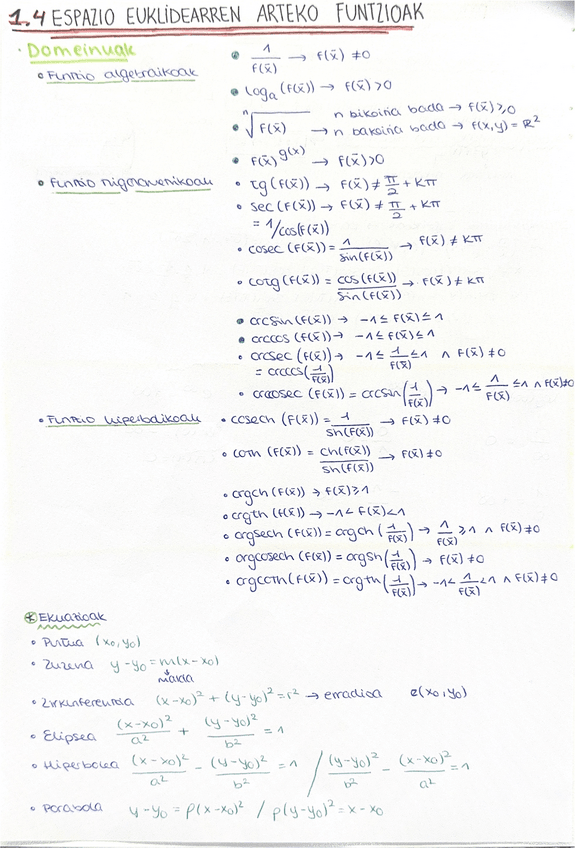 1.4 ESPAZIO EUKLIDEARREN ARTEKO FUNTZIOAK
· Domeinuak
• Funtzio algebraikoak
• 1/f(x̄) → f(x̄) ≠ 0
• logₐ(f(x̄)) → f(x̄) > 0
• ⁿ√f(x̄) n bikoitia bada → f(x̄) ≥ 0
→ n bakoitia bada → f(x,y) = ℝ²
• f(x̄)^g(x) → f(x̄) > 0
• Funtzio trigonometrikoak
• tg(f(x̄)) → f(x̄) ≠ π/2 + Kπ
• sec(f(x̄)) → f(x̄) ≠ π/2 + Kπ
= 1/cos(f(x̄))
• cosec(f(x̄)) = 1/sin(f(x̄)) → f(x̄) ≠ Kπ
• cotg(f(x̄)) = cos(f(x̄))/sin(f(x̄)) → f(x̄) ≠ Kπ
• arcsin(f(x̄)) → -1 ≤ f(x̄) ≤ 1
• arccos(f(x̄)) → -1 ≤ f(x̄) ≤ 1
• arcsec(f(x̄)) → -1 ≤ 1/f(x̄) ≤ 1 ∧ f(x̄) ≠ 0
= arccos(1/f(x̄))
• arccosec(f(x̄)) = arcsin(1/f(x̄)) → -1 ≤ 1/f(x̄) ≤ 1 ∧ f(x̄) ≠ 0
• Funtzio hiperbolikoak
• cosech(f(x̄)) = 1/sh(f(x̄)) → f(x̄) ≠ 0
• coth(f(x̄)) = ch(f(x̄))/sh(f(x̄)) → f(x̄) ≠ 0
• argch(f(x̄)) → f(x̄) ≥ 1
• argth(f(x̄)) → -1 < f(x̄) < 1
• argsech(f(x̄)) = argch(1/f(x̄)) → 1/f(x̄) ≥ 1 ∧ f(x̄) ≠ 0
• argcosech(f(x̄)) = argsh(1/f(x̄)) → f(x̄) ≠ 0
• argcoth(f(x̄)) = argth(1/f(x̄)) → -1 < 1/f(x̄) < 1 ∧ f(x̄) ≠ 0
* Ekuazioak
• Puntua (x₀,y₀)
• Zuzena y-y₀ = m(x-x₀)
malda
• Zirkunferentzia (x-x₀)² + (y-y₀)² = r² → erradioa c(x₀,y₀)
• Elipsea (x-x₀)²/a² + (y-y₀)²/b² = 1
• Hiperbola (x-x₀)²/a² - (y-y₀)²/b² = 1 / (y-y₀)²/b² - (x-x₀)²/a² = 1
• Parabola y-y₀ = p(x-x₀)² / p(y-y₀)² = x-x₀